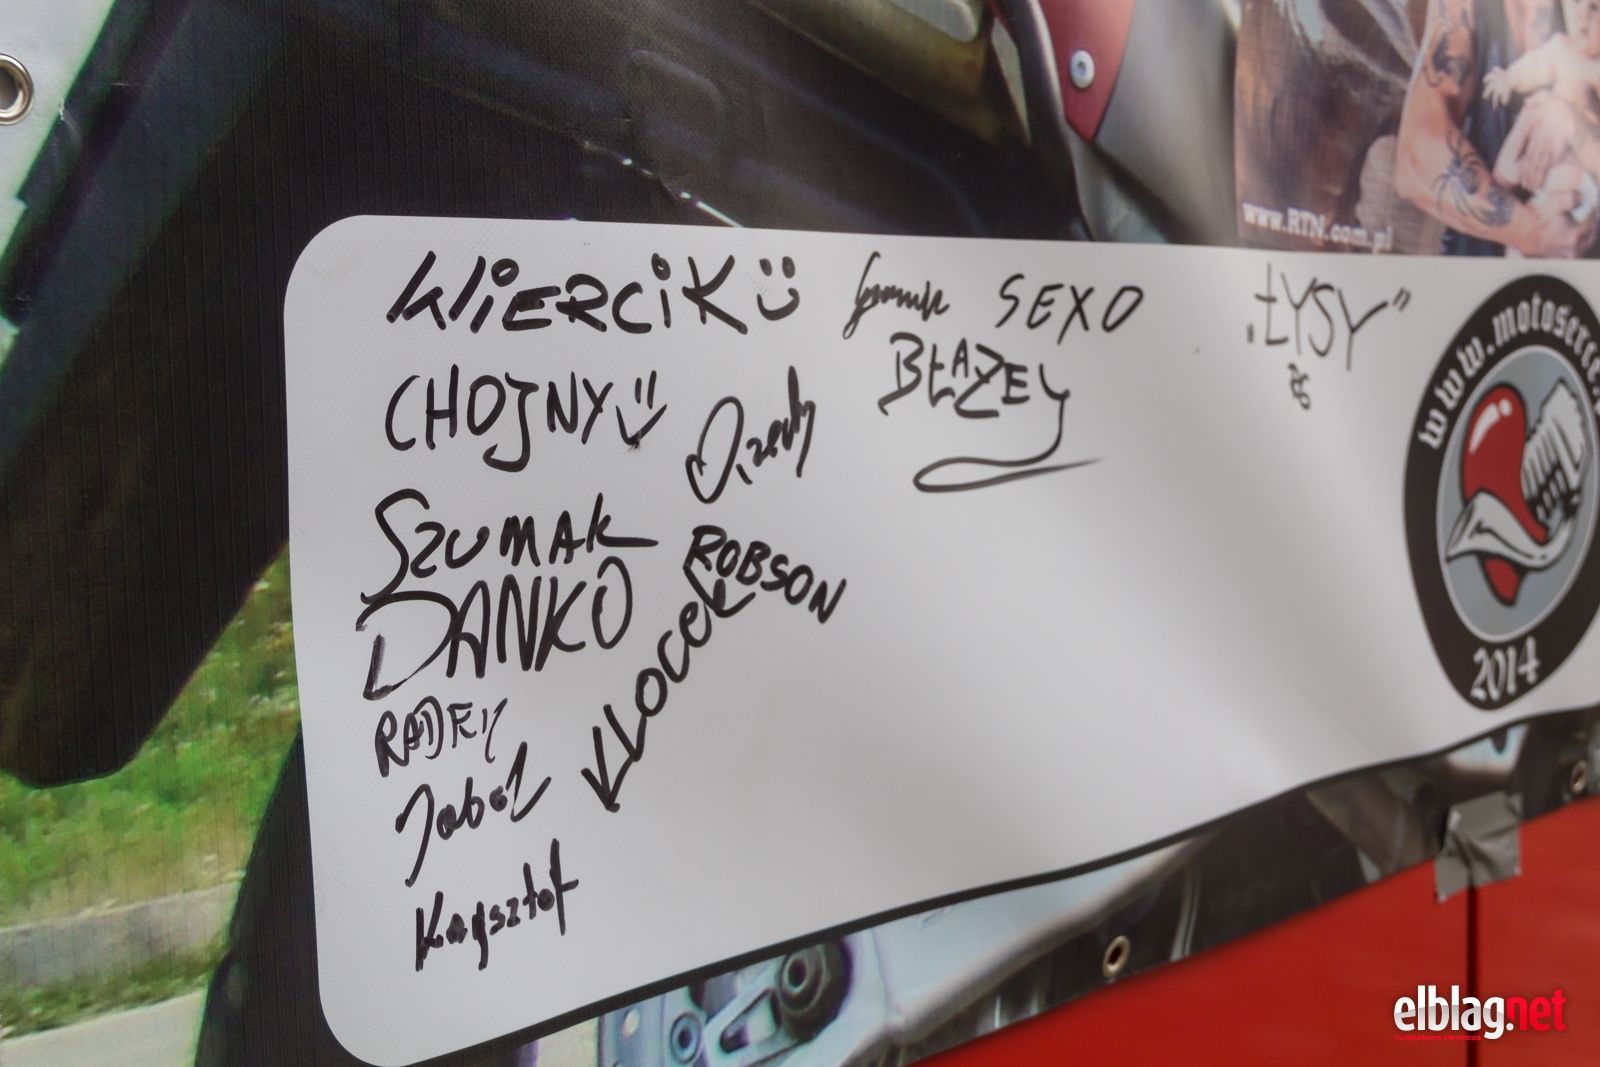 www.RTN.com.pl
WiERCiK SEXO „ŁYSY”
CHOJNY BŁAZEY
SZUMAK
ROBSON
DANKO
KLOCEK
RADEK
Krzysztof
www.motoserce
2014
elblag.net